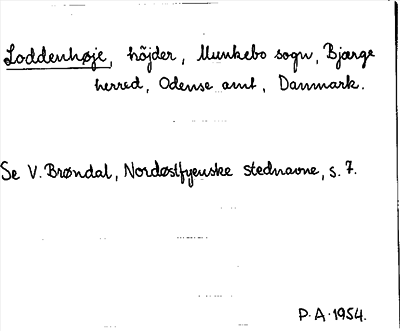 Loddenhøje, höjder, Munkebo sogn, Bjærge
herred, Odense amt, Danmark.
Se V. Brøndal, Nordøstfyenske stednavne, s. 7.
P. A. 1954.